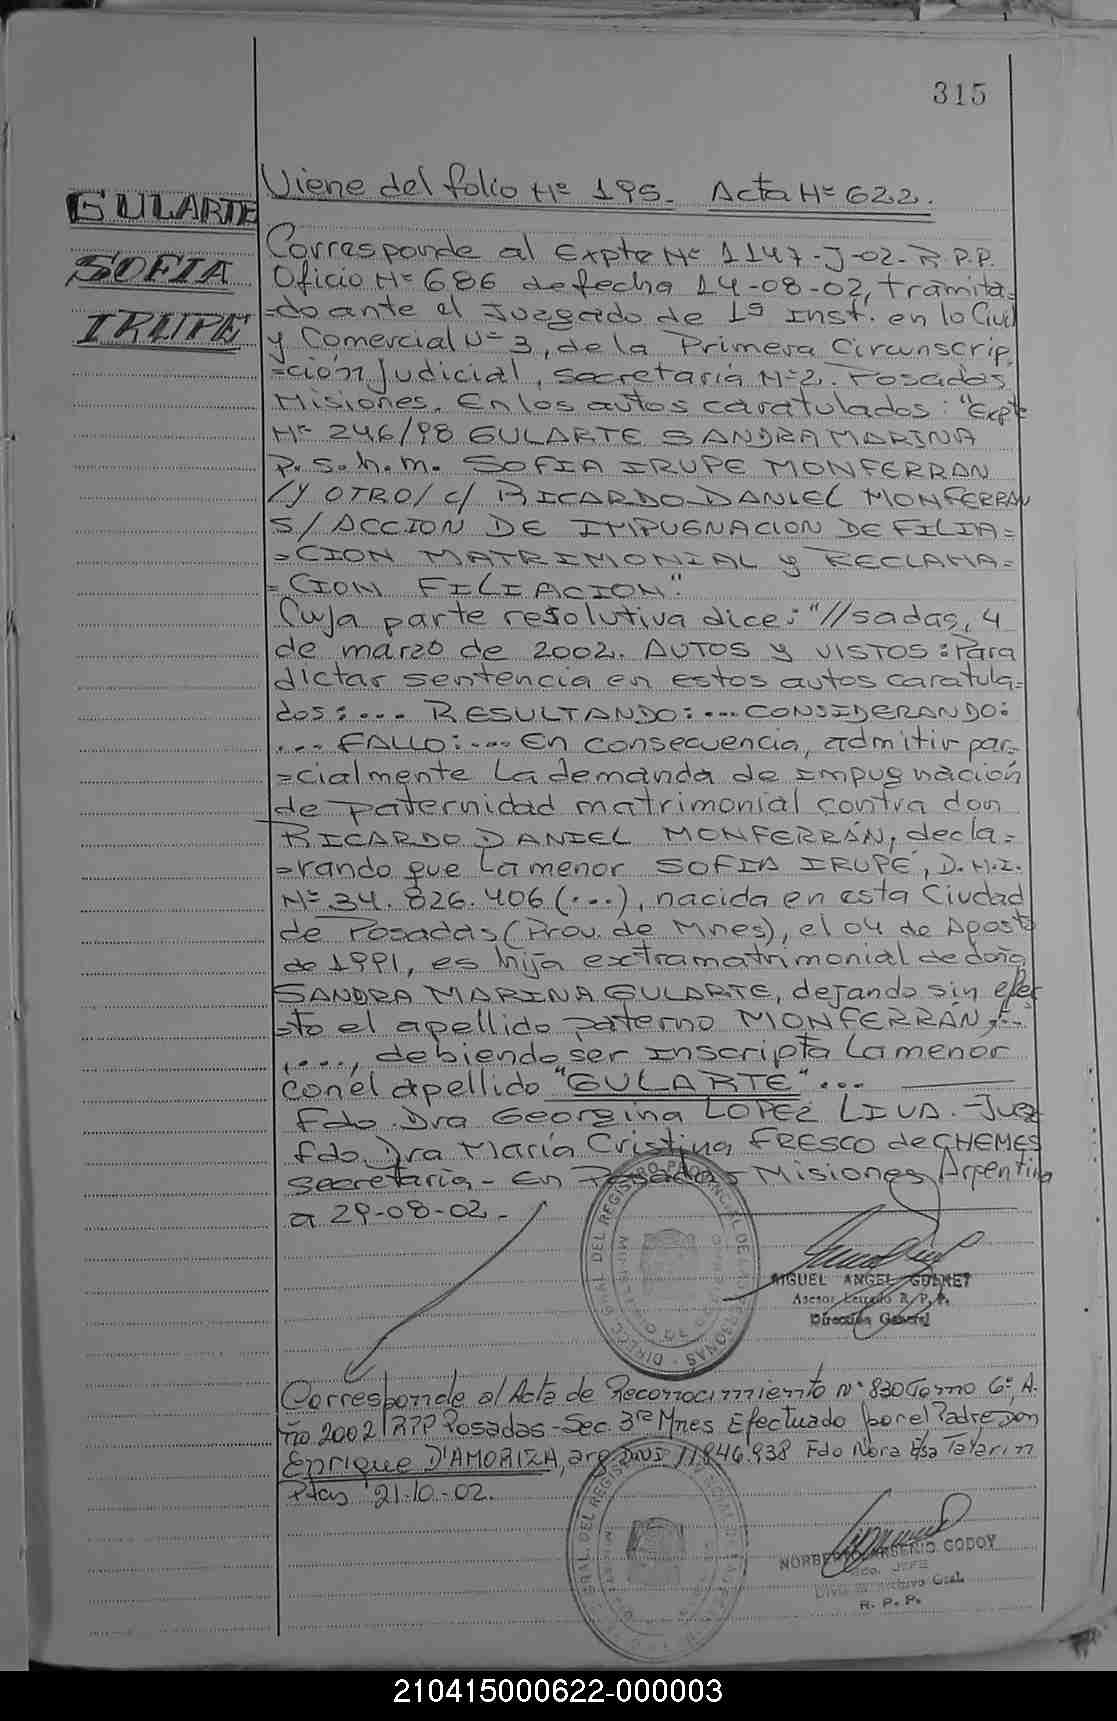 315
GULARTE
SOFIA
IRUPE
Viene del folio Nº 195. Acta Nº 622.
Corresponde al Expte Nº 1147-J-02-R.P.P.
Oficio Nº 686 de fecha 14-08-02, tramita=
=do ante el Juzgado de 1ª Inst. en lo Civil
y Comercial Nº 3, de la Primera Circunscrip=
=ción Judicial, Secretaria Nº 2. Posadas
Misiones. En los autos caratulados: "Expte
Nº 246/98 GULARTE SANDRA MARINA
P.s.h.m. SOFIA IRUPE MONFERRAN
/Y OTRO/ c/ RICARDO DANIEL MONFERRAN
S/ ACCION DE IMPUGNACION DE FILIA=
=CION MATRIMONIAL y RECLAMA=
=CION FILIACION".
Cuya parte resolutiva dice: "//sadas, 4
de marzo de 2002. AUTOS y VISTOS: Para
dictar sentencia en estos autos caratula=
dos:... RESULTANDO:... CONSIDERANDO:
... FALLO:... En consecuencia, admitir par=
=cialmente la demanda de impugnación
de paternidad matrimonial contra don
RICARDO DANIEL MONFERRÁN, decla=
=rando que la menor SOFIA IRUPÉ, D.N.I.
Nº 34.826.406 (...), nacida en esta Ciudad
de Posadas (Prov. de Mnes), el 04 de Agosto
de 1991, es hija extramatrimonial de doña
SANDRA MARINA GULARTE, dejando sin efec
=to el apellido paterno MONFERRÁN,...
...., debiendo ser inscripta la menor
con el apellido "GULARTE"...
Fdo. Dra Georgina LOPEZ LIVA.-Juez
fdo. Dra María Cristina FRESCO de CHEMES
Secretaria- En Posadas Misiones Argentina
a 29-08-02.-
MIGUEL ANGEL
Asesor Letrado R.P.P.
Dirección General
Corresponde al Acta de Reconocimiento Nº 830 Tomo 6º, A=
ño 2002 RPP Posadas-Sec. 3ra Mnes Efectuado por el Padre Don
Enrique D'AMORIZA, arg 11.846.938 Fdo Nora Elsa
Pdas 21-10-02.
NORBERTO ARSENIO GODOY
R. P. P.
210415000622-000003